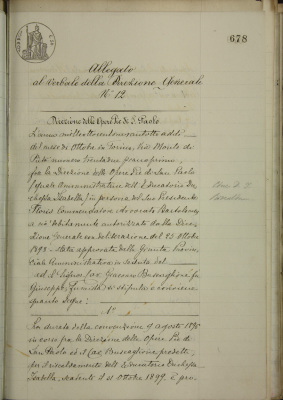 678
Allegato
al Verbale della Direzione Generale
N. 12
Direzione delle Opere Pie di S. Paolo
L'anno mille ottocento novantotto addì
del mese di Ottobre in Torino, Via Monte di
Pietà numero trentadue piano primo,
fra la Direzione delle Opere Pie di San Paolo
(quale Amministratrice dell'Educatorio Du-
chessa Isabella) in persona del Suo Presidente
Floris Commendatore Avvocato Bartolomeo
a ciò debitamente autorizzato dalla Dire-
zione Generale con deliberazione del 12 Ottobre
1898 stata approvata dalla Giunta Provin-
ciale Amministrativa in seduta del
ed il Signor Cav. Giacomo Buscaglione fu
Giuseppe, fumista si stipula e conviene
quanto segue:
1°
La durata della convenzione 9 agosto 1895
in corso fra la Direzione delle Opere Pie di
San Paolo ed il Cav. Buscaglione predetti,
del riscaldamento dell'Educatorio Duchessa
Isabella, scadente il 31 Ottobre 1899 è pro-